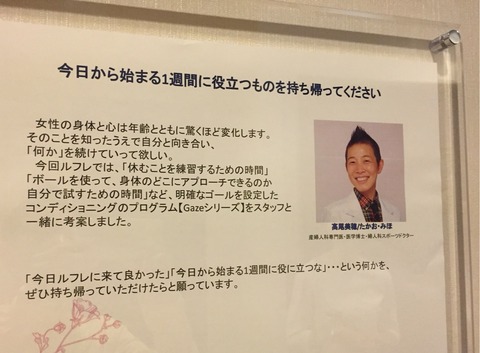 今日から始まる1週間に役立つものを持ち帰ってください
女性の身体と心は年齢とともに驚くほど変化します。
そのことを知ったうえで自分と向き合い、
「何か」を続けていって欲しい。
今回ルフレでは、「休むことを練習するための時間」
「ボールを使って、身体のどこにアプローチできるのか
自分で試すための時間」など、明確なゴールを設定した
コンディショニングのプログラム【Gazeシリーズ】をスタッフと
一緒に考案しました。
高尾美穂/たかお・みほ
産婦人科専門医・医学博士・婦人科スポーツドクター
「今日ルフレに来て良かった」「今日から始まる1週間に役に立つな」・・・という何かを、
ぜひ持ち帰っていただけたらと願っています。